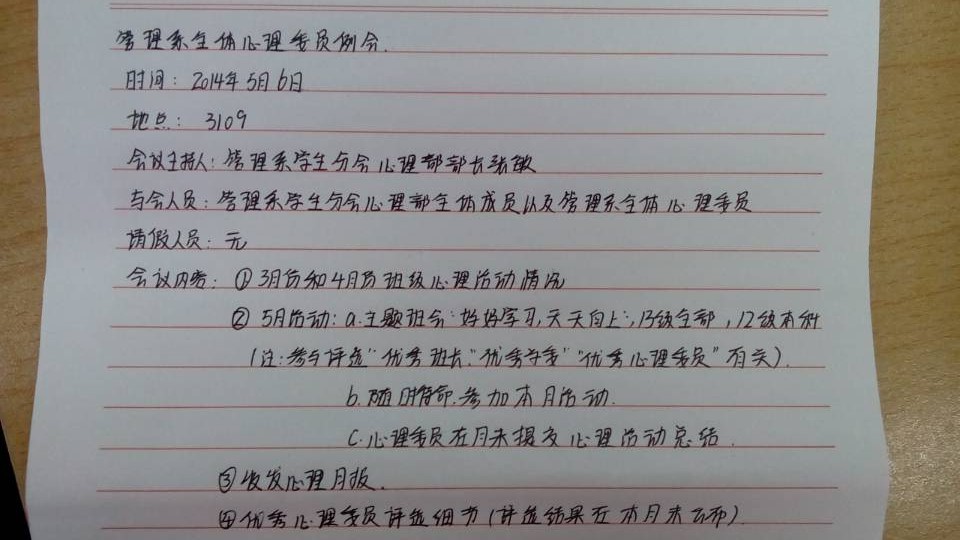 管理系全体心理委员例会.
时间: 2014年5月6日
地点: 3109
会议主持人: 管理系学生分会心理部部长张敏
与会人员: 管理系学生分会心理部全体成员以及管理系全体心理委员
请假人员: 无
会议内容: ①3月份和4月份班级心理活动情况
②5月活动: a.主题班会"好好学习,天天向上",13级全部,12级本科
(注:参与评选"优秀班长""优秀学委""优秀心理委员"有关).
b.随时待命.参加本月活动.
c.心理委员在月末提交心理活动总结.
③收发心理月报.
④优秀心理委员评选细节(评选结果在本月末公布).